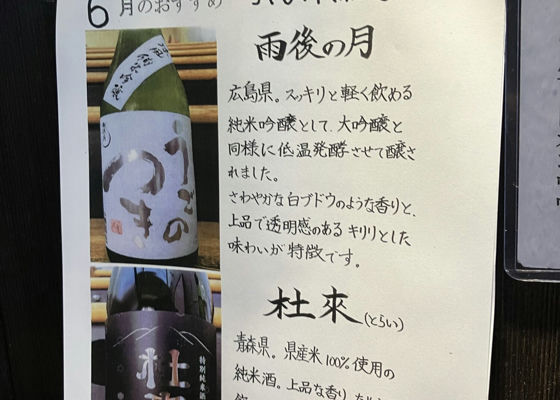 6月のおすすめ
雨後の月
広島県。スッキリと軽く飲める
純米吟醸として、大吟醸と
同様に低温発酵させて醸さ
れました。
さわやかな白ブドウのような香りと、
上品で透明感のある キリリとした
味わいが特徴です。
うごの
つき
杜來(とらい)
青森県。県産米100%使用の
純米酒。上品な香り
特別純米酒
杜來